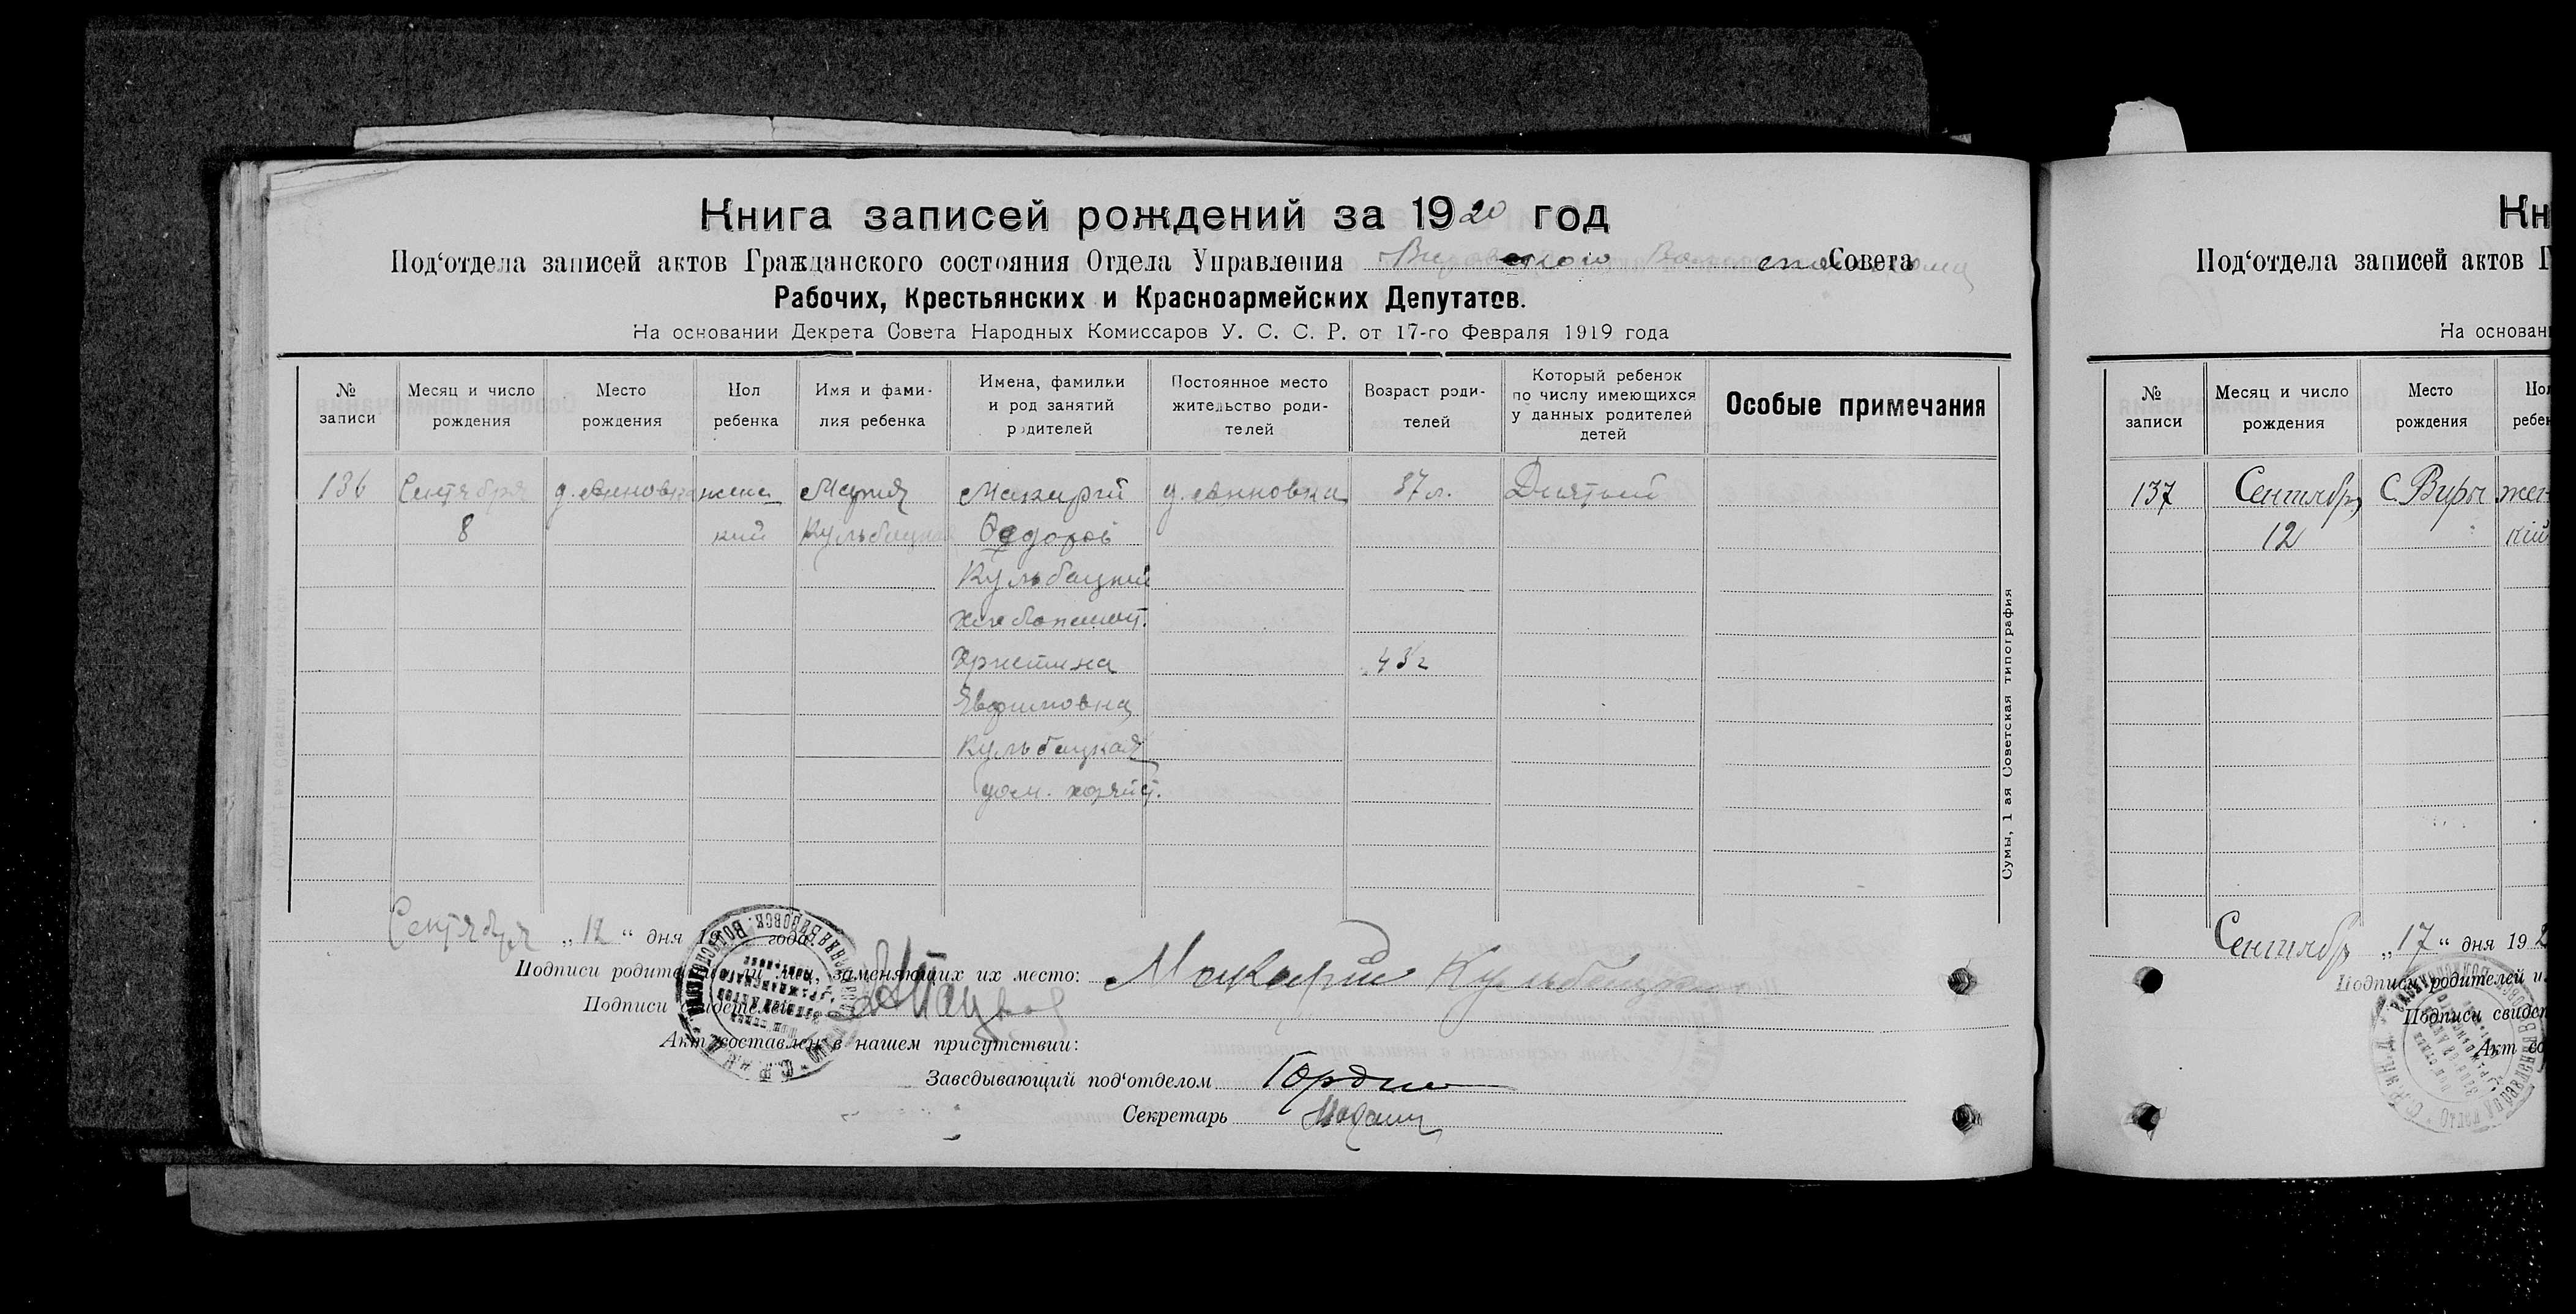 Книга записей рождений за 1920 год
Под‘отдела записей актов Гражданского состояния Отдела Управления Совета
Рабочих, Крестьянских и Красноармейских Депутатов.
На основании Декрета Совета Народных Комиссаров У. С. С. Р. от 17-го Февраля 1919 года
№ записи
Месяц и число рождения
Место рождения
Пол ребенка
Имя и фами-
лия ребенка
Имена, фамилии
и род занятий
родителей
Постоянное место
жительство роди-
телей
Возраст роди-
телей
Который ребенок
по числу имеющихся
у данных родителей
детей
Особые примечания
136 Сентября д. Анновка женс Мария Макарий д. Анновка 37 л.
8 кий Кульбацкая Федоров
Кульбацкий
хлебопашец.
Христина 43 г
Явфимовна
Кульбацкая
дом. хозяйст.
Сумы, 1 ая Советская типография
Сентября „12“ дня 19 года
Подписи родителей или лиц, заменяющих их место: Макарий Кульбацкий
Подписи свидетелей
Акт составлен в нашем присутствии:
Заведывающий под‘отделом
Секретарь
Кн
Под‘отдела записей актов Г
На основан
№ записи
Месяц и число рождения
Место рождения
Пол
ребен
137 Сентябр С. Виры жен
12 кий
Сентябр „17“ дня 192
Подписи родителей и
Подписи свидет
Акт со